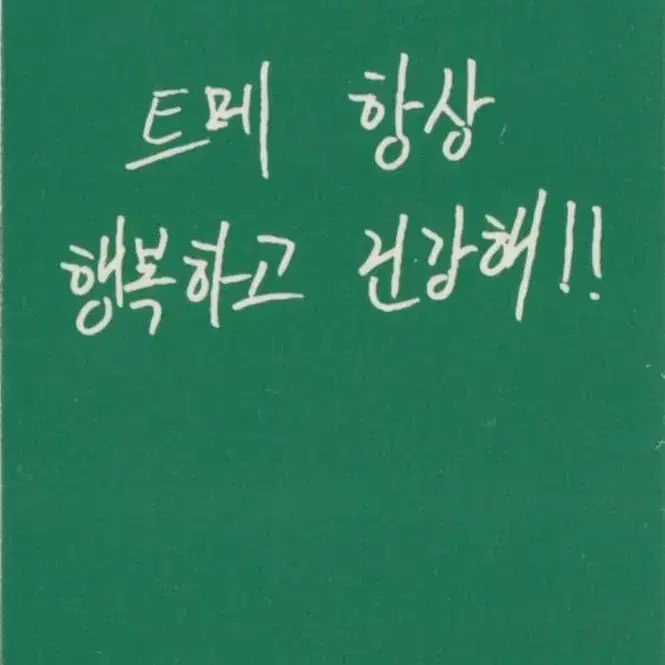 트메 항상
행복하고 건강해!!